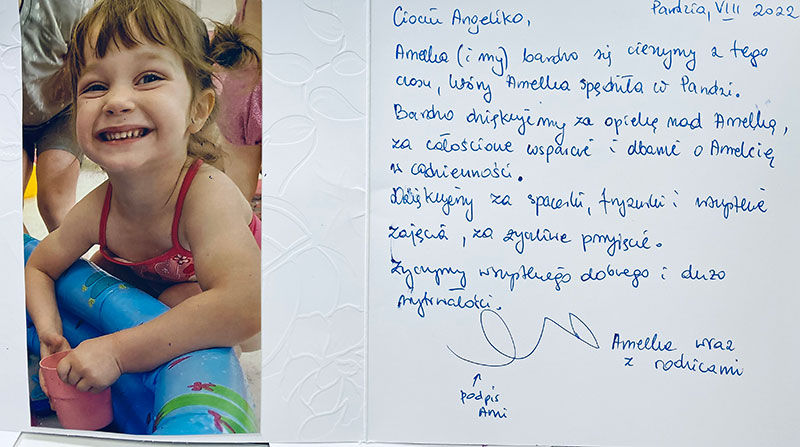 Pandzia, VIII 2022
Ciociu Angeliko,
Amelka (i my) bardzo się cieszymy z tego
czasu, który Amelka spędziła w Pandzi.
Bardzo dziękujemy za opiekę nad Amelką,
za całościowe wsparcie i dbanie o Amelcię
w codzienności.
Dziękujemy za spacerki, fryzurki i wszystkie
zajęcia, za życzliwe przyjęcie.
Życzymy wszystkiego dobrego i dużo
wytrwałości.
Amelka wraz
z rodzicami
podpis
Ami